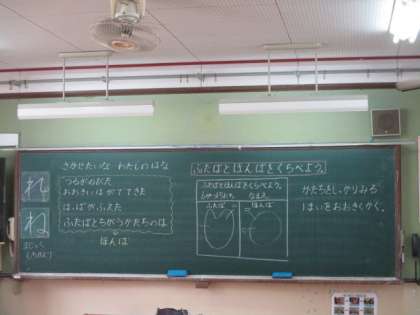 れ
ね
さかせたいな わたしのはな
つるがのびた
おおきいはがでてきた
はっぱがふえた
ふたばとちがうかたちのは
ほんば
ふたばとほんばをくらべよう。
ふたばとほんばをくらべよう。
なまえ
ふたば
ほんば
かたちとし、かりみる
1まいをおおきくかく。